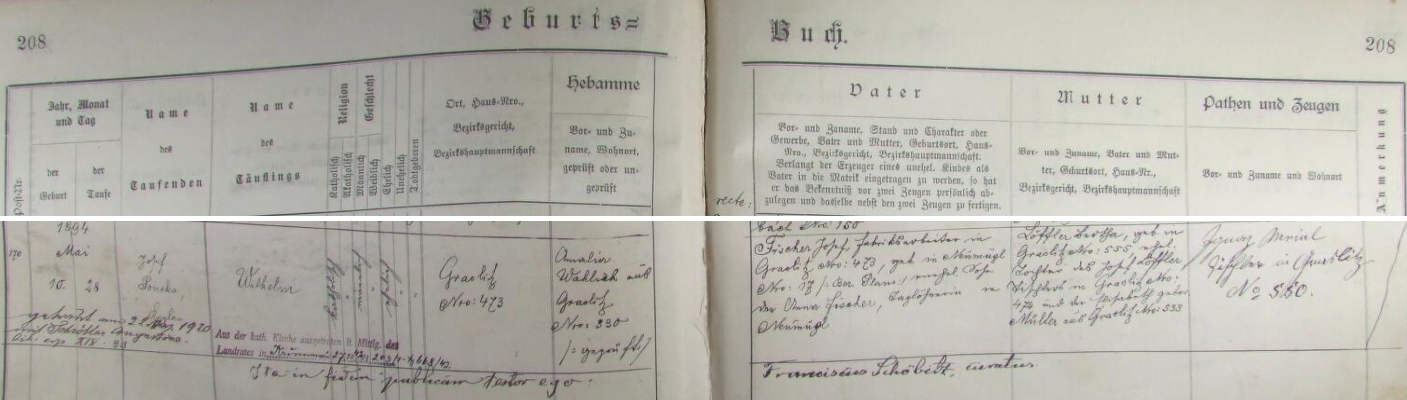 Geburts=
208
Jahr, Monat und Tag
der Geburt
der Taufe
Name des Taufenden
Name des Täuflings
Religion
Katholisch
Akatholisch
Geschlecht
Männlich
Weiblich
Ehelich
Unehelich
Todtgeboren
Ort, Haus-Nro.,
Bezirksgericht,
Bezirkshauptmannschaft
Hebamme
Vor- und Zu-
name, Wohnort,
geprüft oder un-
geprüft
Post-Nr.
1894
170
Mai
10. 28
Josef
Wilhelm
katholisch
männlich
ehelich
Graslitz
Nro: 473
Amalia
Wahlich aus
Graslitz
Nro: 330
/: geprüft :/
1920
Aus der kath. Kirche ausgetreten lt. Mittlg. des
Landrates in
Ita in fidem publicam testor ego:
Buch.
208
Vater
Vor- und Zuname, Stand und Charakter oder
Gewerbe, Vater und Mutter, Geburtsort, Haus-
Nro., Bezirksgericht, Bezirkshauptmannschaft.
Verlangt der Erzeuger eines unehel. Kindes als
Vater in die Matrik eingetragen zu werden, so hat
er das Bekenntniß vor zwei Zeugen persönlich ab-
zulegen und dasselbe nebst den zwei Zeugen zu fertigen.
Mutter
Vor- und Zuname, Vater und Mut-
ter, Geburtsort, Haus-Nr.,
Bezirksgericht, Bezirkshauptmannschaft
Pathen und Zeugen
Vor- und Zuname und Wohnort
Anmerkung
recte:
bach Nro: 150
Fischer Josef, Fabriksarbeiter in
Graslitz Nro: 473, geb in
Nro: 17 unehel. Sohn
der Anna Fischer, Taglöhnerin in
Löffler Bertha, geb in
Graslitz Nro: 555, ehel.
Tochter des Josef Löffler
Tischlers in Graslitz Nro:
474 und der Elisabeth gebor.
Müller aus Graslitz Nro: 533
Ignaz
Tischler in Graslitz
No 550.
Franciscus Schöbitz, curatus.